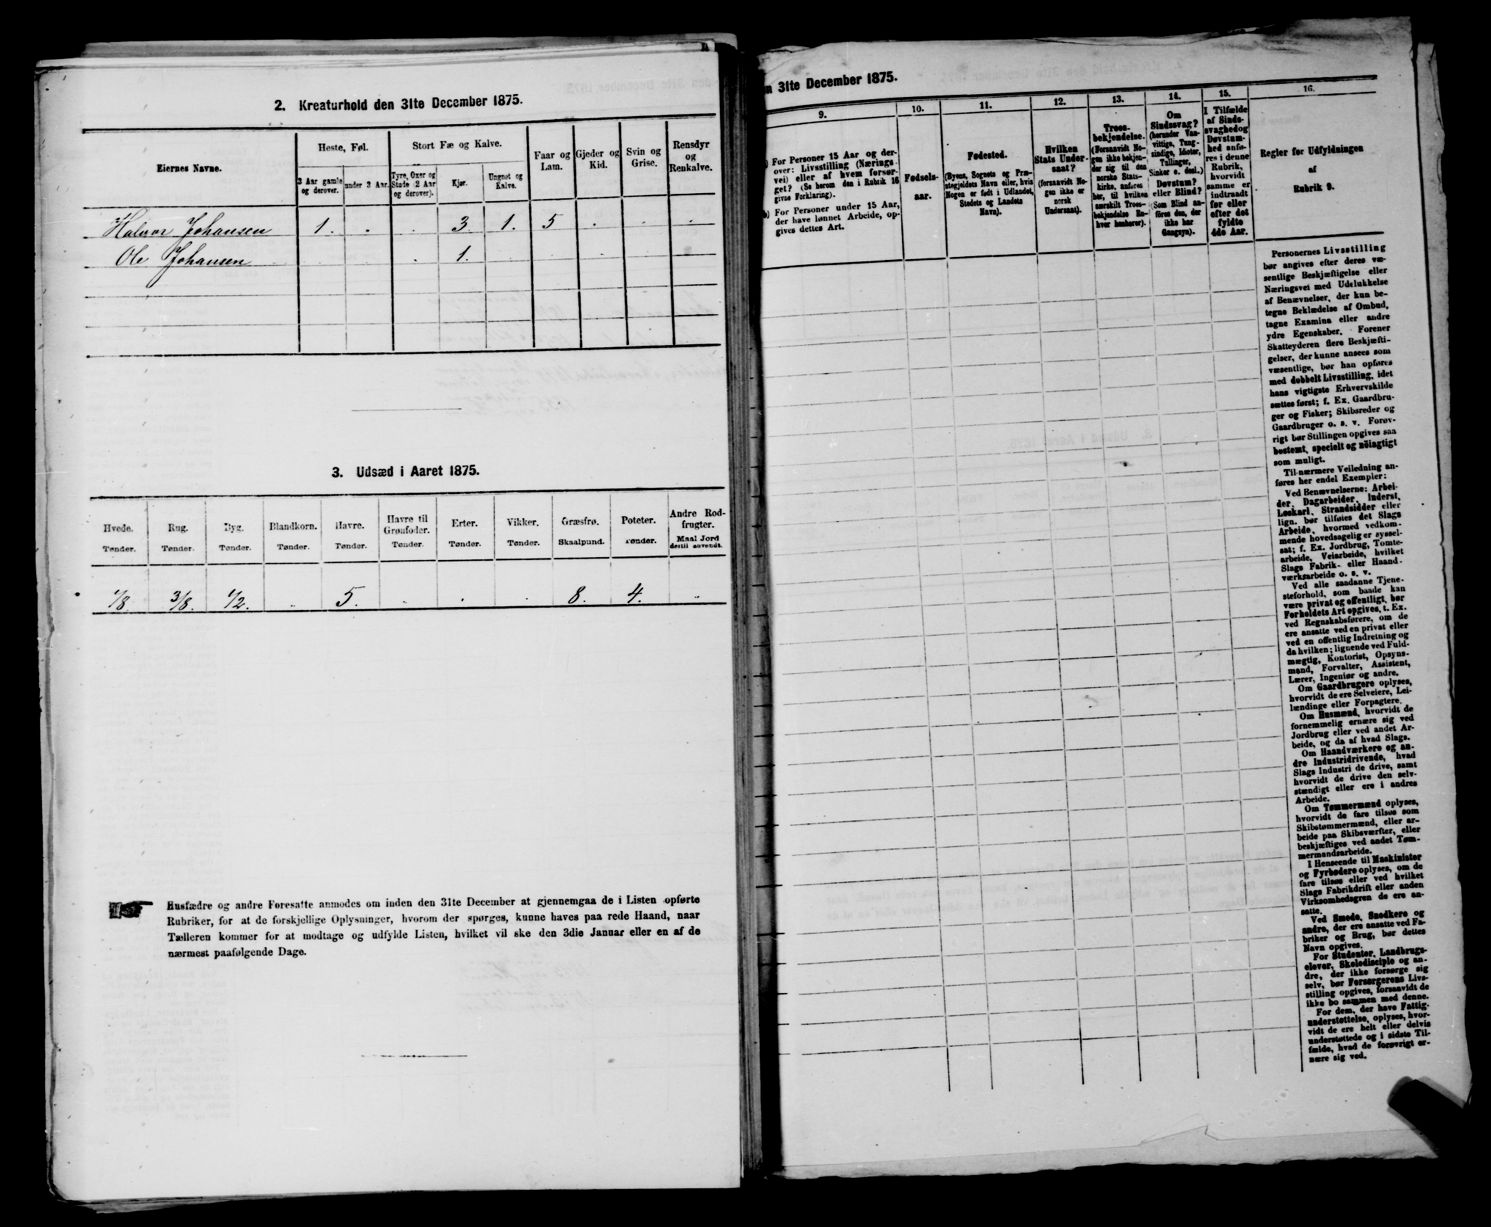 2. Kreaturhold den 31te December 1875.
Eiernes Navne.
Heste, Føl.
Stort Fæ og Kalve.
Faar og Lam.
Gjeder og Kid.
Svin og Grise.
Rensdyr og Renkalve.
3 Aar gamle og derover.
under 3 Aar.
Tyre, Oxer og Stude 2 Aar og derover).
Kjør.
Ungnøt og Kalve.
Halvor Johansen 1. . . 3. 1. 5 . . .
Ole Johansen . . . 1. . . . .
3. Udsæd i Aaret 1875.
Hvede. Rug. Byg. Blandkorn. Havre. Havre til Grønfoder. Erter. Vikker. Græsfrø. Poteter. Andre Rodfrugter.
Tønder. Tønder. Tønder. Tønder. Tønder. Tønder. Tønder. Tønder. Skaalpund. Tønder. Maal Jord dertil anvendt.
1/8 3/8 1/2 . 5. . . . 8. 4. .
Husfædre og andre Foresatte anmodes om inden den 31te December at gjennemgaa de i Listen opførte
Rubriker, for at de forskjellige Oplysninger, hvorom der spørges, kunne haves paa rede Haand, naar
Tælleren kommer for at modtage og udfylde Listen, hvilket vil ske den 3die Januar eller en af de
nærmest paafølgende Dage.
31te December 1875.
9.
For Personer 15 Aar og derover: Livsstilling (Næringsvei) eller af hvem forsørget? (Se herom den i Rubrik 16 givne Forklaring).
For Personer under 15 Aar, der have lønnet Arbeide, opgives dettes Art.
10.
Fødselsaar.
11.
Fødested.
(Byens, Sognets og Præstegjeldets Navn eller, hvis Nogen er født i Udlandet, Stedets og Landets Navn).
12.
Hvilken Stats Undersaat?
(forsaavidt Nogen ikke er norsk Undersaat).
13.
Troesbekjendelse.
(Forsaavidt Nogen ikke bekjender sig til den norske Statskirke, anføres her, til hvilken særskilt Troesbekjendelse Enhver henhører).
14.
Om Sindssvag?
(herunder Vanvittige, Tungsindige, Idioter, Tullinger, Sinker o. desl.)
Døvstum? eller Blind?
(Som Blind anføres den, der ikke har Gangsyn).
15.
I Tilfælde af Sindssvaghed og Døvstumhed anføres i denne Rubrik, hvorvidt samme er indtraadt før eller efter det fyldte 4de Aar.
16.
Regler for Udfyldningen
af
Rubrik 9.
Personernes Livsstilling
bør angives efter deres væ-
sentlige Beskjæftigelse eller
Næringsvei med Udelukkelse
af Benævnelser, der kun be-
tegne Beklædelse af Ombud,
tagne Examina eller andre
ydre Egenskaber. Forener
Skatteyderen flere Beskjæfti-
gelser, der kunne ansees som
væsentlige, bør han opføres
med dobbelt Livsstilling, idet
hans vigtigste Erhvervskilde
sættes først; f. Ex. Gaardbru-
ger og Fisker; Skibsreder og
Gaardbruger o. s. v. Forøv-
rigt bør Stillingen opgives saa
bestemt, specielt og nöiagtigt
som muligt.
Til nærmere Veiledning an-
føres her endel Exempler:
Ved Benævnelserne: Arbei-
der, Dagarbeider, Inderst,
Løskarl, Strandsidder eller
lign. bør tilføies det Slags
Arbeide, hvormed vedkom-
mende hovedsagelig er syssel-
sat; f. Ex. Jordbrug, Tomte-
arbeide, Veiarbeide, hvilket
Slags Fabrik- eller Haand-
værksarbeide o. s. v.
Ved alle saadanne Tjene-
steforhold, som baade kan
være privat og offentligt, bør
Forholdets Art opgives, t. Ex.
ved Regnskabsførere, om de
ere ansatte ved en privat eller
ved en offentlig Indretning og
da hvilken; lignende ved Fuld-
mægtig, Kontorist, Opsyns-
mand, Forvalter, Assistent,
Lærer, Ingeniør og andre.
Om Gaardbrugere oplyses,
hvorvidt de ere Selveiere, Lei-
lændinge eller Forpagtere.
Om Husmænd, hvorvidt de
fornemmelig ernære sig ved
Jordbrug eller ved andet Ar-
beide, og da af hvad Slags.
Om Haandværkere og an-
dre Industridrivende, hvad
Slags Industri de drive, samt
hvorvidt de drive den selv-
stændigt eller ere i andres
Arbeide.
Om Tømmermænd oplyses,
hvorvidt de fare tilsøs som
Skibstømmermænd, eller ar-
beide paa Skibsværfter, eller
beskjæftiges ved andet Tøm-
mermandsarbeide.
I Henseende til Maskinister
og Fyrbødere oplyses, om de
fare tilsøs eller ved hvilket
Slags Fabrikdrift eller anden
Virksomhedsgren de ere an-
satte.
Ved Smede, Snedkere og
andre, der ere ansatte ved Fa-
briker og Brug, bør dettes
Navn opgives.
For Studenter, Landbrugs-
elever, Skoledisciple og an-
dre, der ikke forsørge sig
selv, bør Forsørgerens Livs-
stilling opgives, forsaavidt de
ikke bo sammen med denne.
For dem, der have Fattig-
understøttelse, oplyses, hvor-
vidt de ere helt eller delvis
understøttede og i sidste Til-
fælde, hvad de forøvrigt er-
nære sig ved.